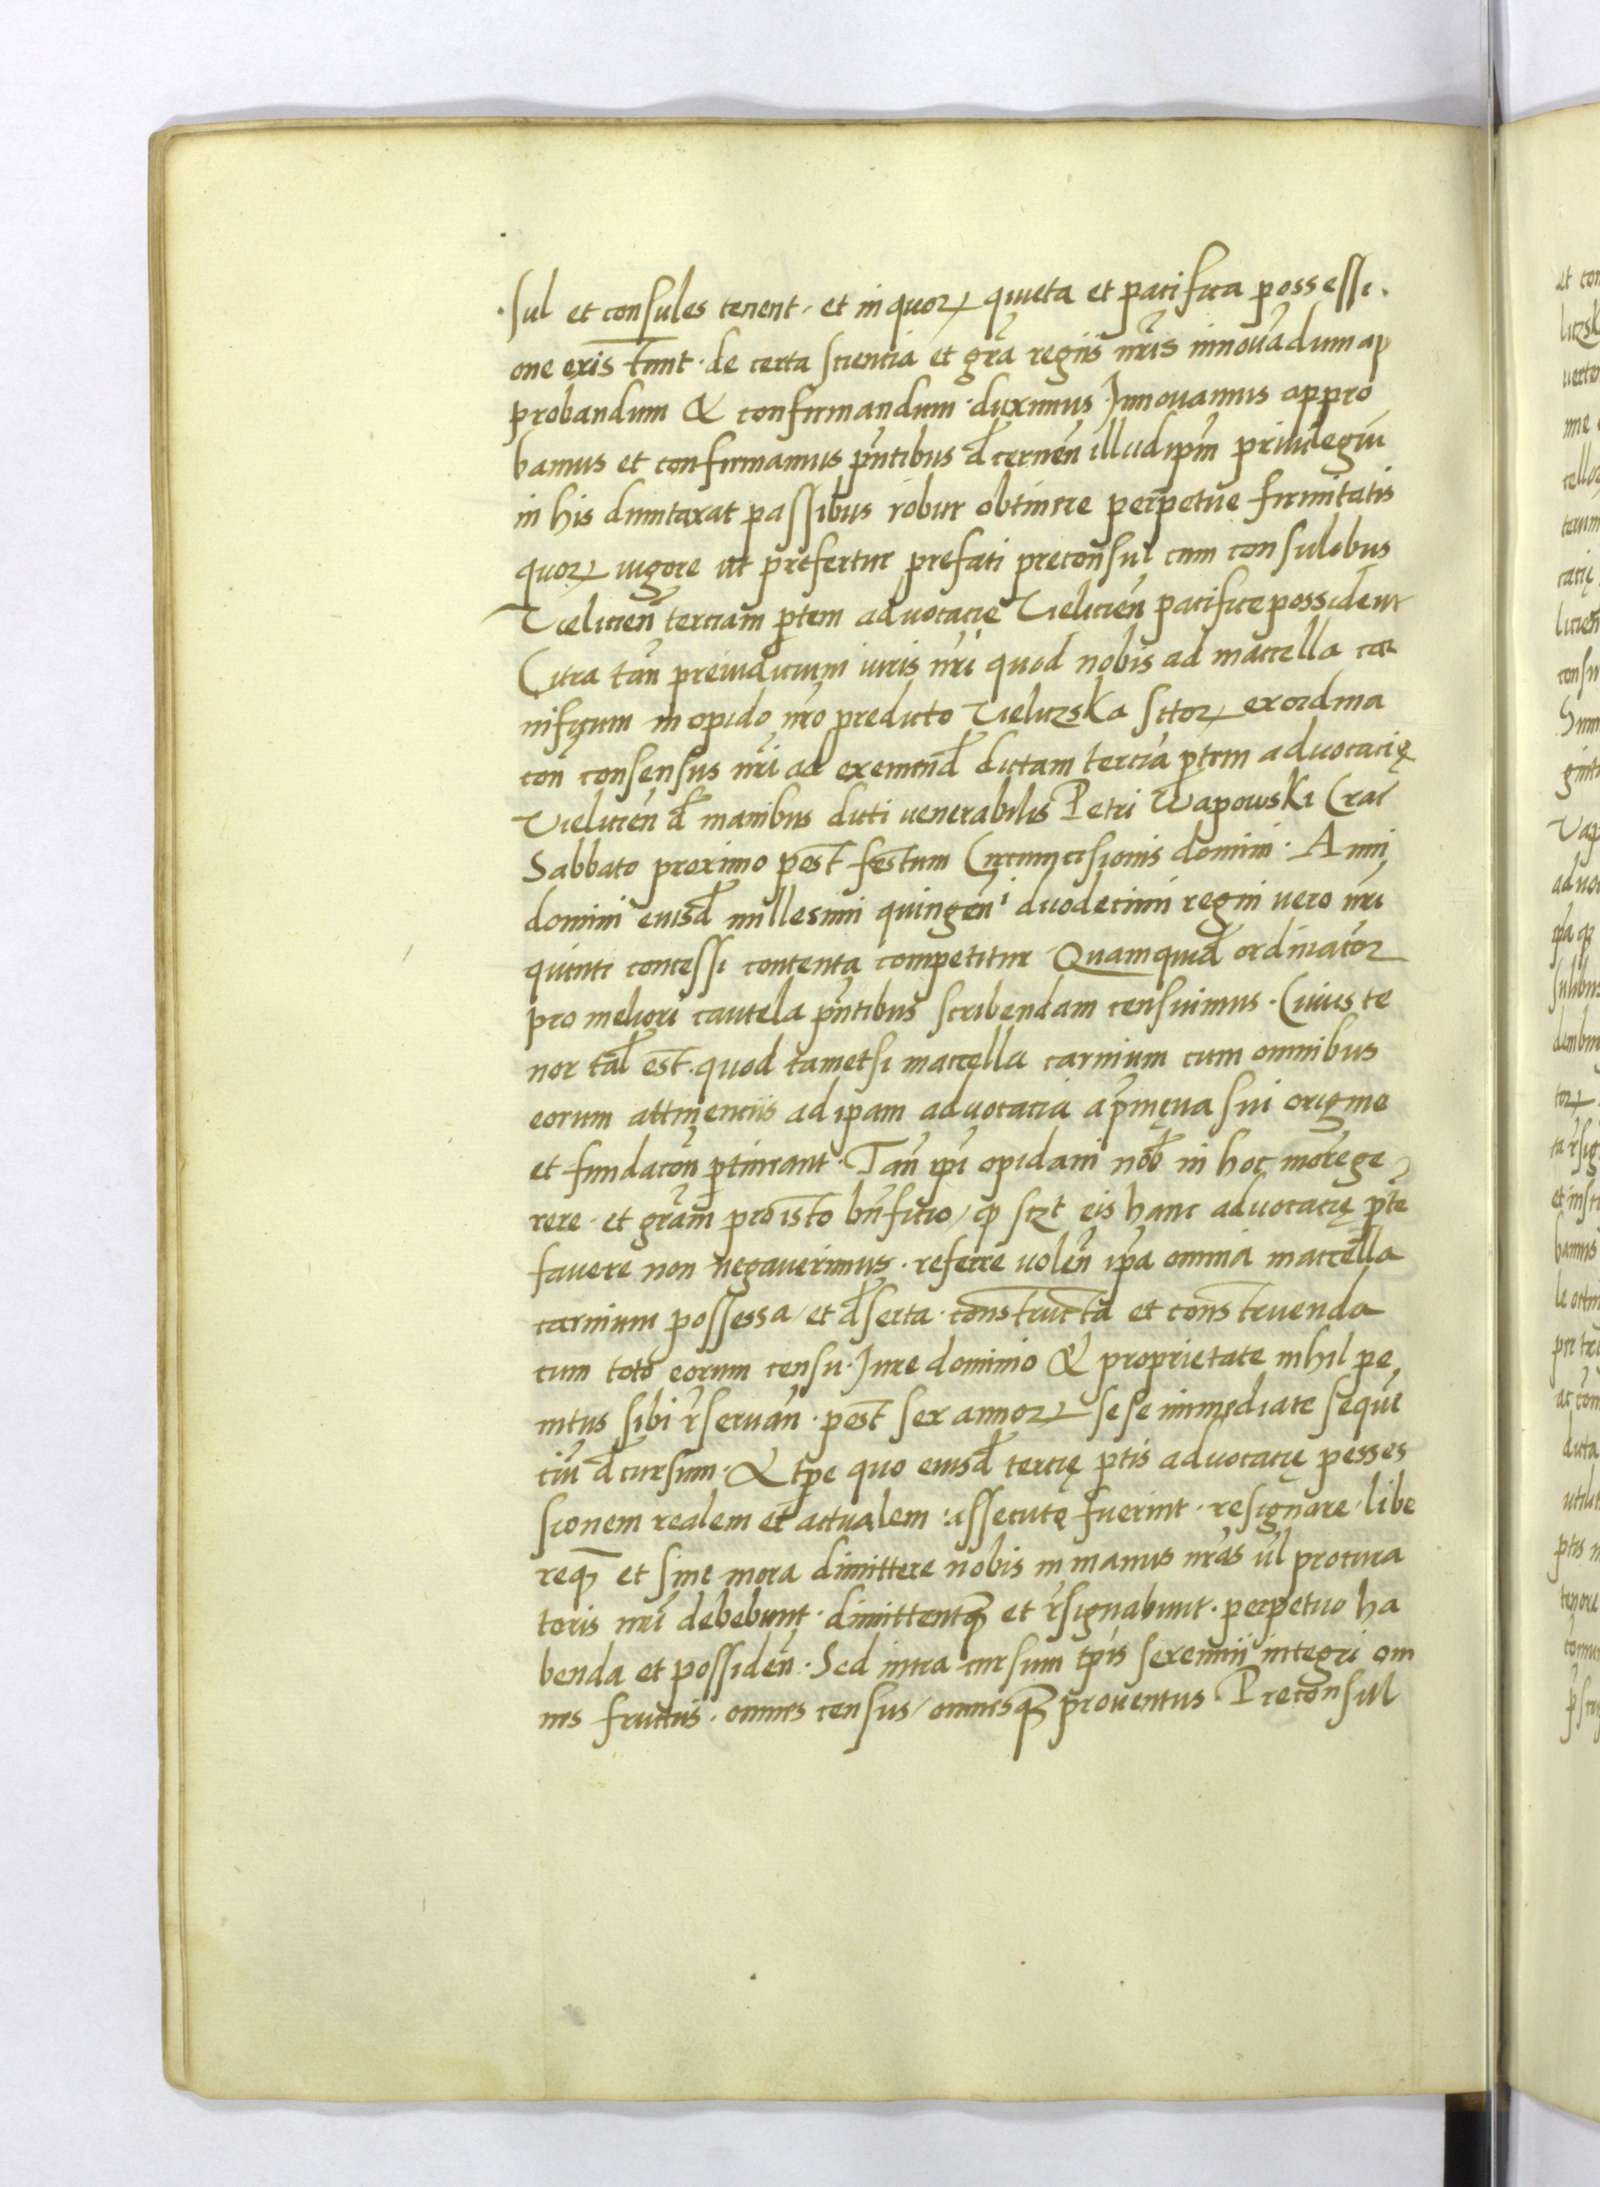 sul et consules tenent · et in quorꝝ quieta et pacifica possessi·
one existunt · de certa scientia et grã regiis nr̃is innouãdum ap
probandum & confirmandum · duximus Innouamus appro
bamus et confirmamus pñtibus đcerneñ illud ip̃m priuilegiũ
in his dumtaxat passibus robur obtinere perpetue firmitatis
quorꝝ uigore ut prefertur prefati preconsul cum consulibus
Vielicieñ terciam ptem aduocacie Vielicieñ pacifice possident
Citra tañ preiudicium iuris nr̃i quod nobis ad maccella car
nificum in opido nr̃o predicto Vieliczska sitorꝝ ex ordina
cõn consensus nr̃i ad eximenđ dictam terciã ptem aduocacię
Vielicieñ đ manibus dicti uenerabilis Petri Wapowski Crac̃
Sabbato proximo post festum Circumcisionis domini · Anni
domini eiusđ millesimi quingeñi duodecimi regni vero nr̃i
quinti concessi contenta competitur Quamquiđ ordinacõn
pro meliori cautela pñtibus scribendam censuimus · Cuius te
nor tał est · quod tametsi maccella carnium cum omnibus
eorum attinenciis ad ipam aduocaciã a primęua sui origine
et fundacõn ptinerant · Tañ ip̃i opidani noƀ in hoc morẽ ge
rere · et grãm pro isto bñficio / ꝙ sczt eis hanc aduocacię ptẽ
favere non negauerimus · referre uoleñ ip̃a omnia maccella
carnium possessa / et đserta · constructa et construenda
cum toto eorum censu · Iure dominio & proprietate nihil pe
nitus sibi r̃seruañ · post sex annorꝝ sese immediate sequẽ
ciũ đcursum · & tpe quo eiusđ tercię ptis aduocacię posses
sionem realem et actualem assecutę fuerint · resignare · libe
reqꝫ et sine mora dimittere nobis in manus nr̃as ul̃ procura
toris nr̃i debebunt · dimittentqꝫ et r̃signabunt · perpetuo ha
benda et possideñ · Sed intra cursum tpis sexennii integri om
nes fructus · omnes census / omnesqꝫ prouentus Preconsul